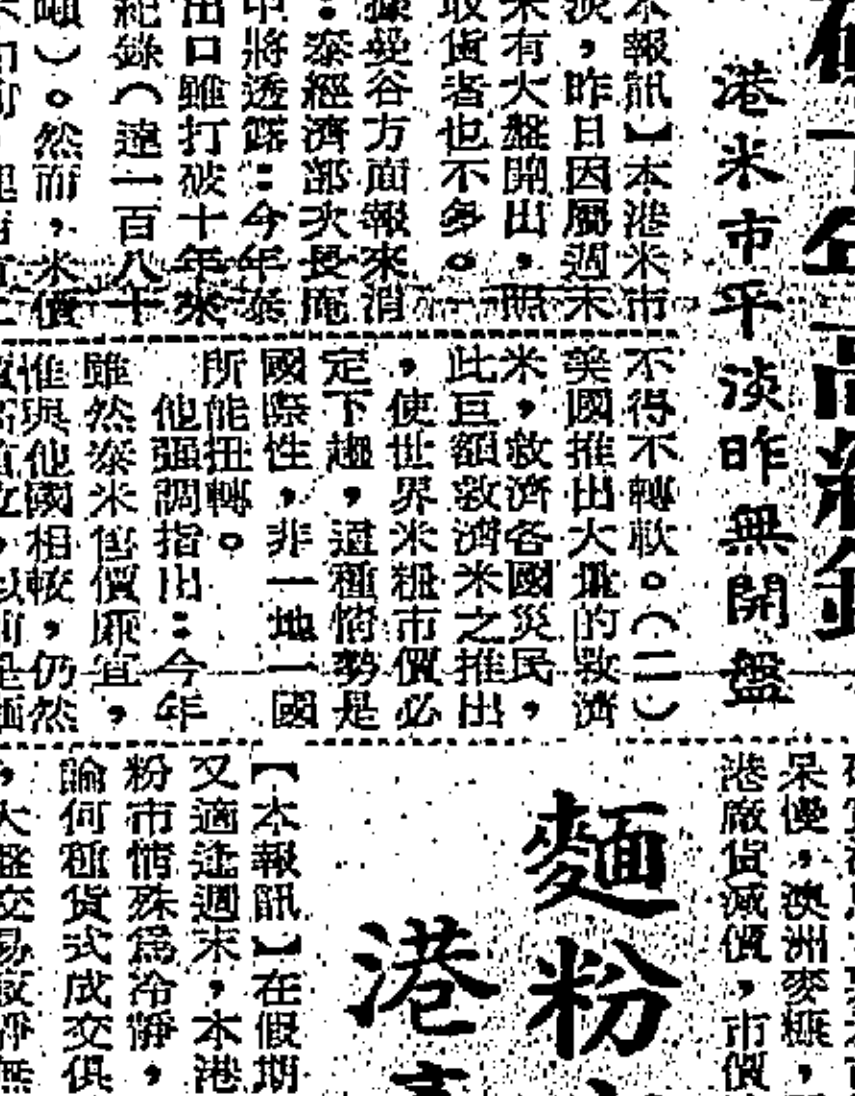 港米市平淡昨無開盤
本報訊】本港米市
淡，昨日因屬週末
未有大盤開出，照
取貨者也不多。
據曼谷方面報來消
：泰經濟部次長庵
中將透露：今年泰
出口雖打破十年來
紀錄（達一百八十
噸）。然而，米價
不得不轉軟。（二）
美國推出大量的救濟
米，救濟各國災民，
此巨額救濟米之推出
，使世界米糧市價必
定下趨，這種情勢是
國際性，非一地一國
所能扭轉。
他強調指出：今年
雖然泰米售價廉宜，
惟與他國相較，仍然
呆慢，澳洲麥糠，
港廠貨減價，市價
麵粉
港
【本報訊】在假期
又適逢週末，本港
粉市情殊為冷靜，
論何種貨式成交俱
，大盤交易寂靜無